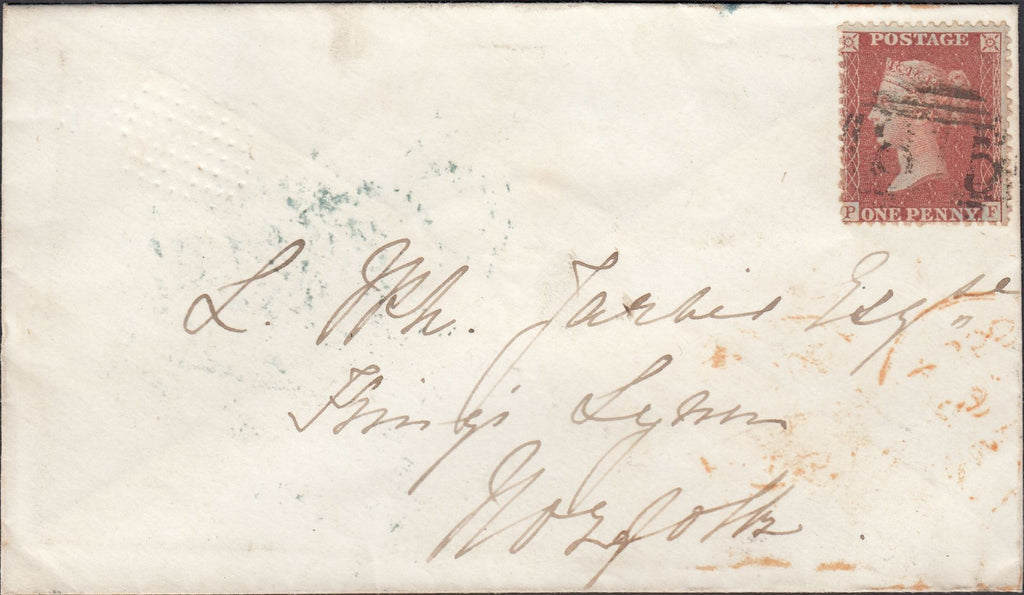 POSTAGE
P ONE PENNY F
L. Wh. Jarvis Esqre
Kings Lynn
Norfolk